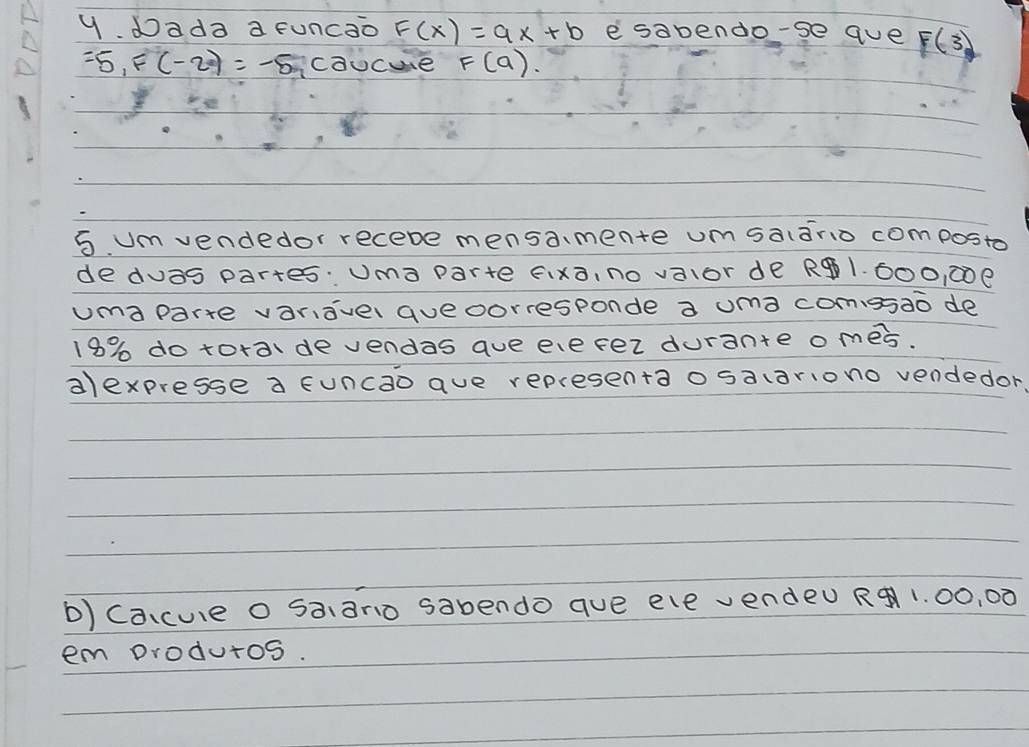 4. Dada a função F(x) = ax + b e sabendo-se que F(3)
=5, F(-2) = -5, caucule F(a).
5. Um vendedor recebe mensalmente um salário composto
de duas partes: Uma parte fixa, no valor de R$1.000,00 e
uma parte variável que oorresponde a uma comissão de
18% do total de vendas que ele fez durante o mês.
a) expresse a função que representa o salario no vendedor.
b) Calcule o salário sabendo que ele vendeu R$ 1.00,00
em produtos.